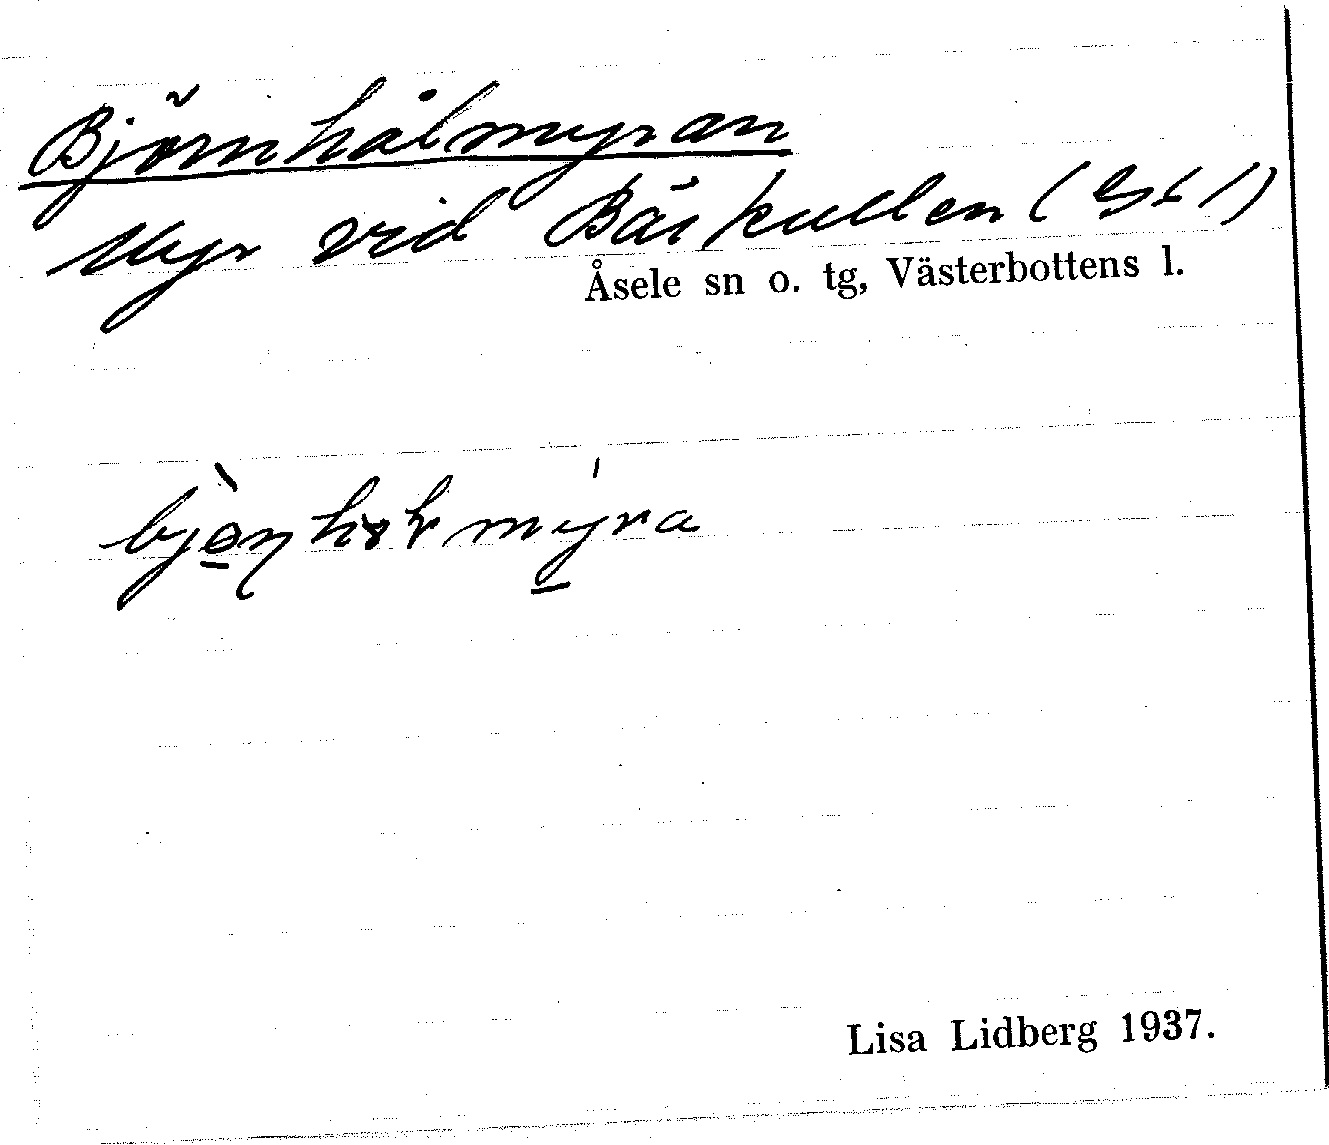 Björnhålmyran
Myr vid Bäskullen
Åsele sn o. tg, Västerbottens l.
Lisa Lidberg 1937.